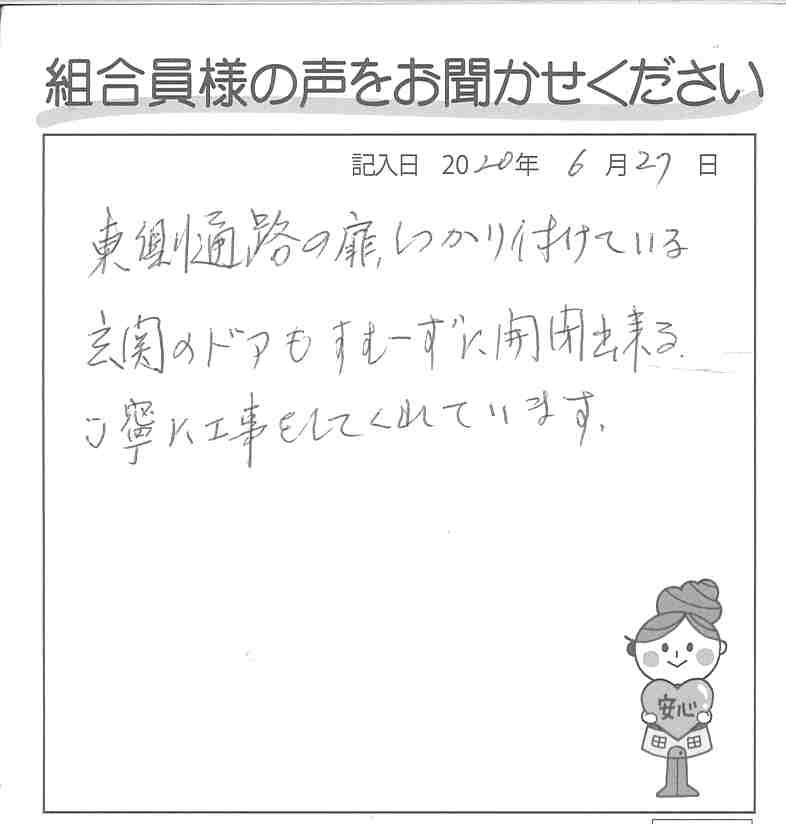 組合員様の声をお聞かせください
記入日 2020年 6月27日
東側通路の扉、しっかり付けている
玄関のドアもすむーずに開閉出来る。
丁寧に工事をしてくれています。
安心